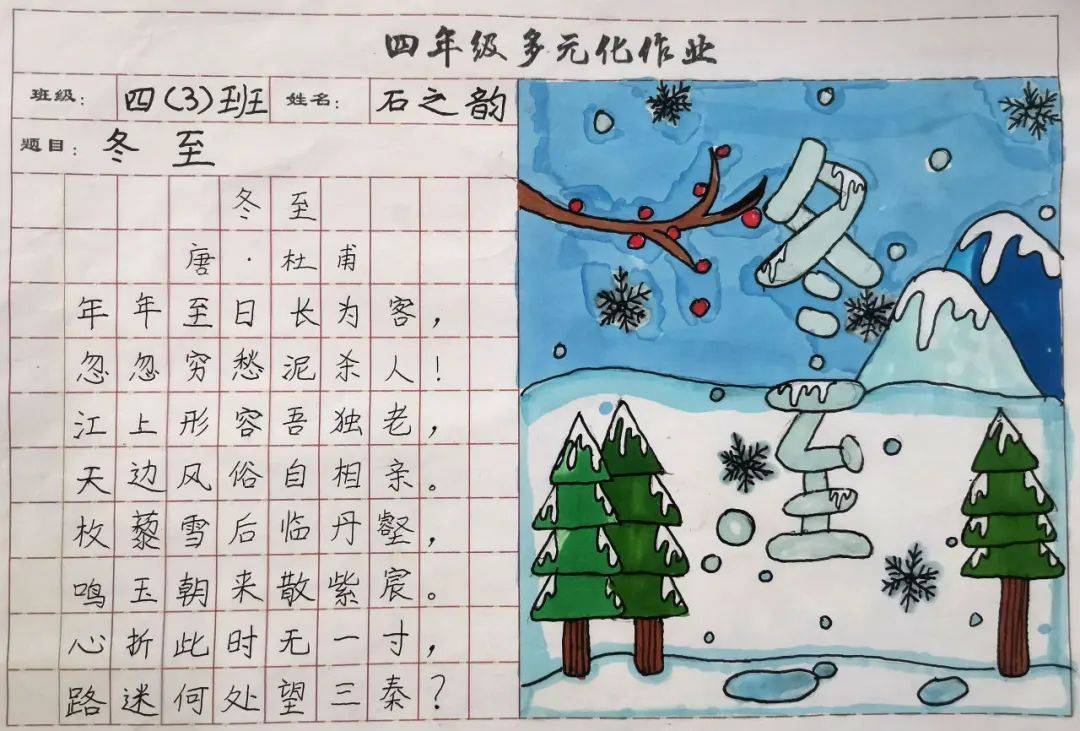 四年级多元化作业
班级： 四(3)班 姓名： 石之韵
题目： 冬至
冬至
唐·杜甫
年年至日长为客，
忽忽穷愁泥杀人！
江上形容吾独老，
天边风俗自相亲。
杖藜雪后临丹壑，
鸣玉朝来散紫宸。
心折此时无一寸，
路迷何处望三秦？
冬至